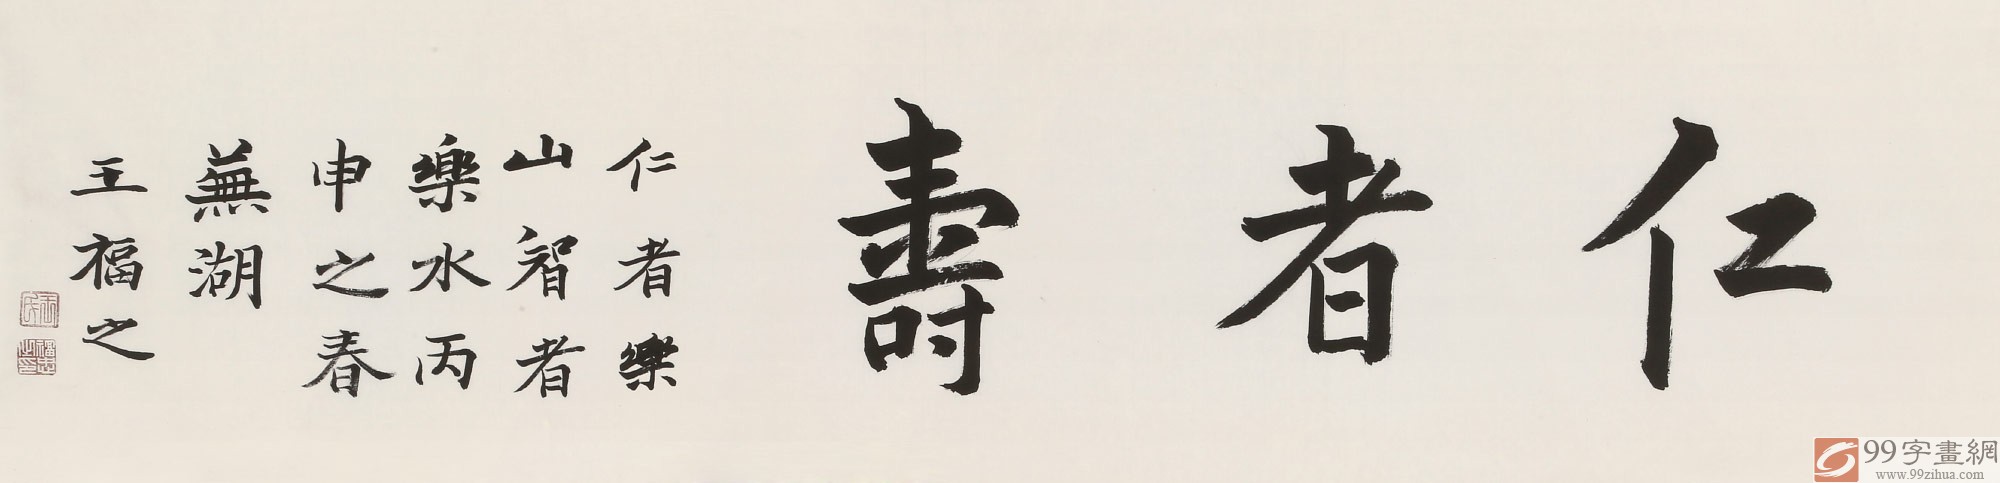 仁者壽
仁者樂
山智者
樂水丙
申之春
蕪湖
王福之
99字畫網
www.99zihua.com